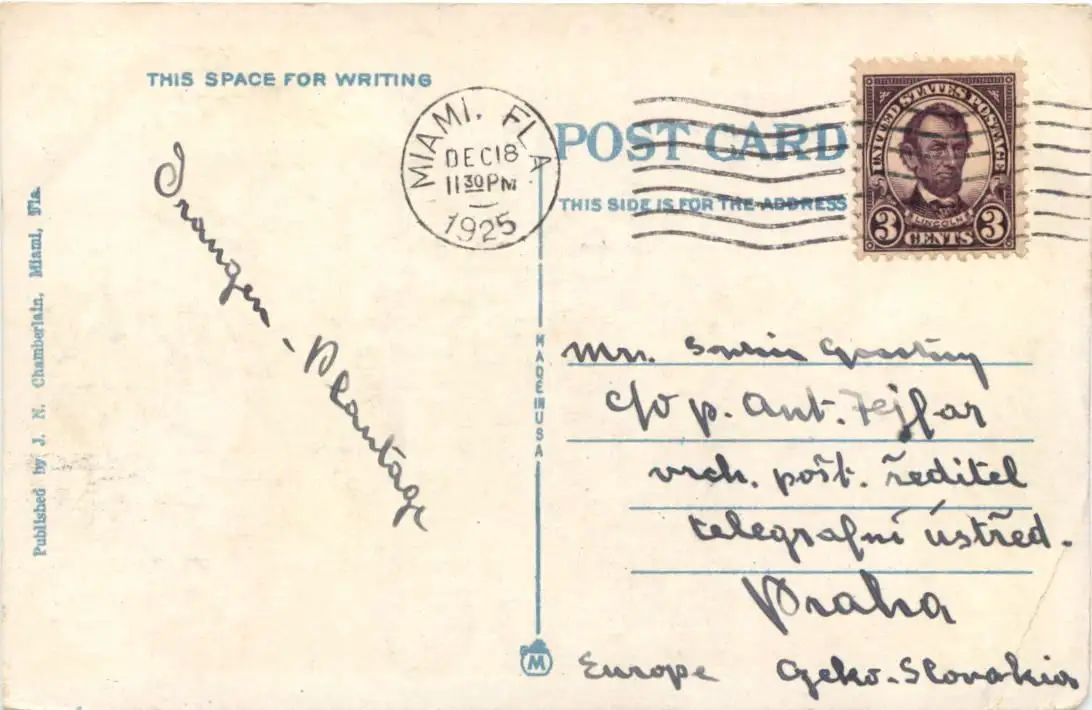 THIS SPACE FOR WRITING
Published by J. N. Chamberlain, Miami, Fla.
Orangen-Plantage
MIAMI, FLA.
DEC 18
11 30 PM
1925
POST CARD
THIS SIDE IS FOR THE ADDRESS
UNITED STATES POSTAGE
LINCOLN
3 CENTS 3
MADE IN USA
Mr.
c/o p. Ant. Fejfar
vrch. pošt. ředitel
telegrafní ústřed.
Praha
Europe Czeko-Slovakia
M